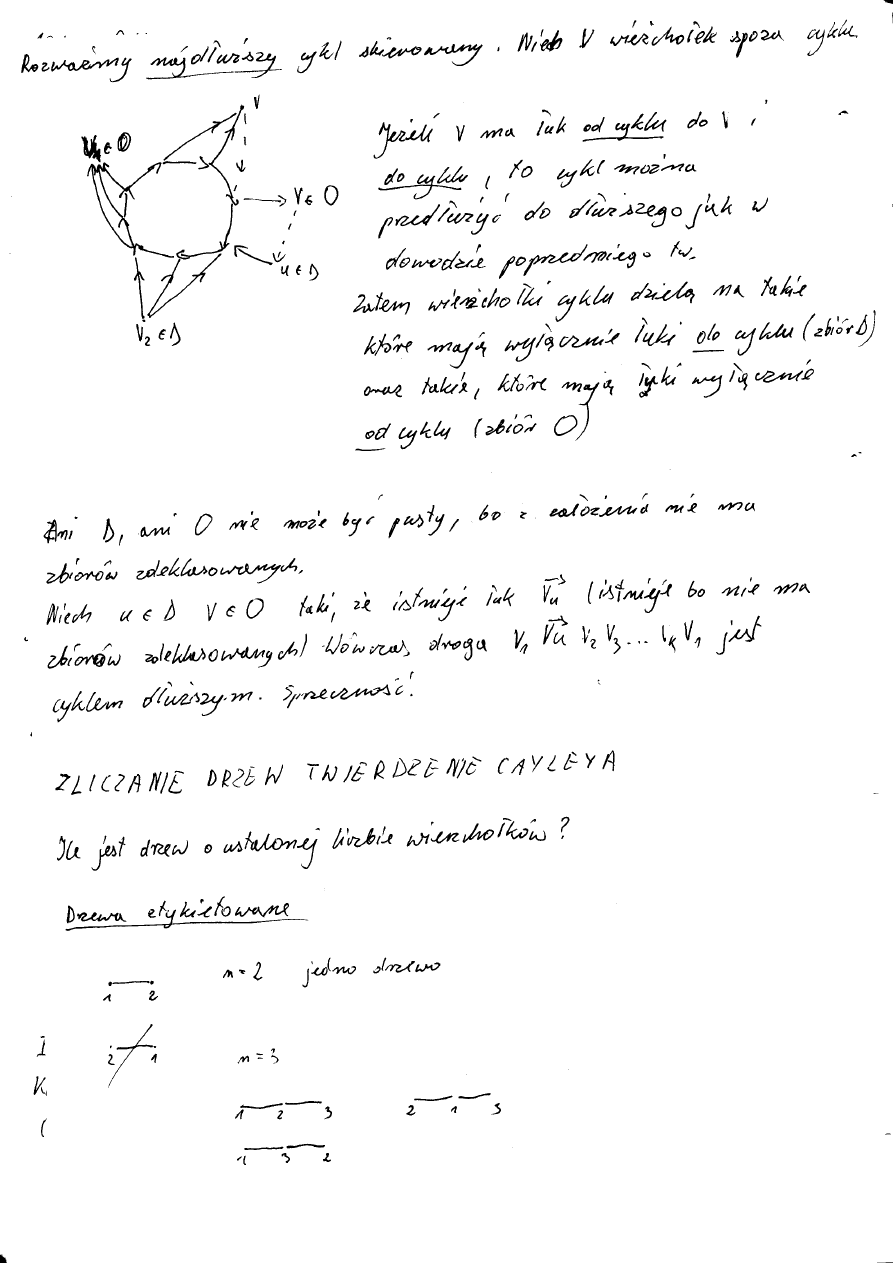 Rozważmy najdłuższy cykl skierowany. Niech V wierzchołek spoza cyklu.
V
∈ O
V ∈ O
u ∈ D
V₂ ∈ D
Jeżeli V ma łuk od cyklu do V i
do cyklu, to cykl można
przedłużyć do dłuższego jak w
dowodzie poprzedniego tw.
Zatem wierzchołki cyklu dzielą na takie
które mają wyłącznie łuki do cyklu (zbiór D)
oraz takie, które mają łuki wyłącznie
od cyklu (zbiór O)
Ani D, ani O nie może być pusty, bo z założenia nie ma
zbiorów zdeklasowanych.
Niech u ∈ D V ∈ O taki, że istnieje łuk Vu (istnieje bo nie ma
zbiorów zdeklasowanych) Wówczas droga V₁ Vu V₂ V₃ ... Vₖ V₁ jest
cyklem dłuższym. Sprzeczność.
ZLICZANIE DRZEW TWIERDZENIE CAYLEYA
Ile jest drzew o ustalonej liczbie wierzchołków?
Drzewa etykietowane
1 2 n=2 jedno drzewo
2 1 n=3
1 2 3 2 1 3
1 3 2